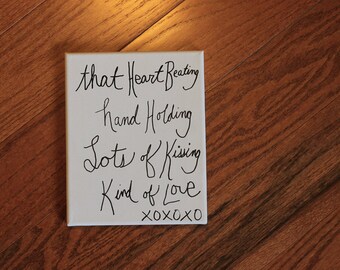 that Heart Beating
hand Holding
Lots of Kissing
Kind of Love
XOXOXO